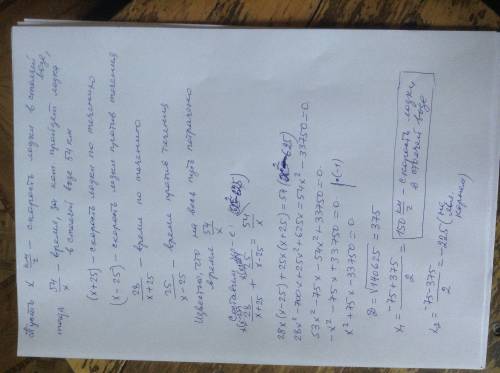 Пусть x км/г - скорость лодки в стоячей воде,
тогда 54/x - время, за кот. пройдет лодка в стоячей воде 54 км
(x+25) - скорость лодки по течению
(x-25) - скорость лодки против течения
28/x+25 - время по течению
25/x-25 - время против течения
Известно, что на весь путь потрачено время 54/x
Составим ур-е:
28/x+25 + 25/x-25 = 54/x
28x(x-25)+25x(x+25)=54(x²-625)
28x²-700x+25x²+625x=54x²-33750=0
53x²-75x-54x²+33750=0
-x²-75x+33750=0 |·(-1)
x²+75x-33750=0
D=√140625=375
x₁=-75+375/2=150 км/г - скорость лодки в стоячей воде
x₂=-75-375/2=-225 (не